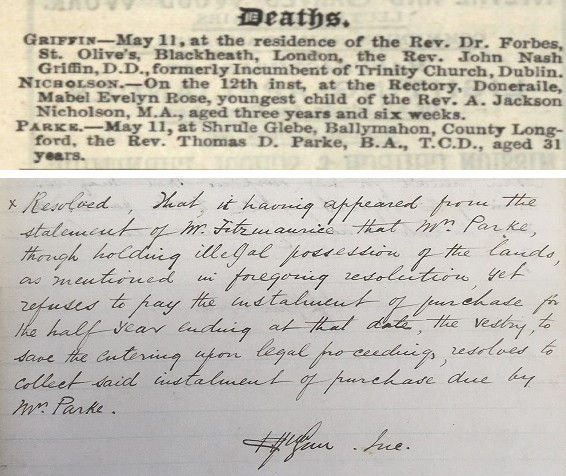 Deaths.
GRIFFIN—May 11, at the residence of the Rev. Dr. Forbes,
St. Olive's, Blackheath, London, the Rev. John Nash
Griffin, D.D., formerly Incumbent of Trinity Church, Dublin.
NICHOLSON.—On the 12th inst, at the Rectory, Doneraile,
Mabel Evelyn Rose, youngest child of the Rev. A. Jackson
Nicholson, M.A., aged three years and six weeks.
PARKE.—May 11, at Shrule Glebe, Ballymahon, County Long-
ford, the Rev. Thomas D. Parke, B.A., T.C.D., aged 31
years.
x Resolved, That, it having appeared from the
statement of Mr. Fitzmaurice that Mrs. Parke,
though holding illegal possession of the lands,
as mentioned in foregoing resolution, yet
refuses to pay the instalment of purchase for
the half year ending at that date, the vestry, to
save the entering upon legal proceedings, resolves to
collect said instalment of purchase due by
Mrs. Parke.
Inc.